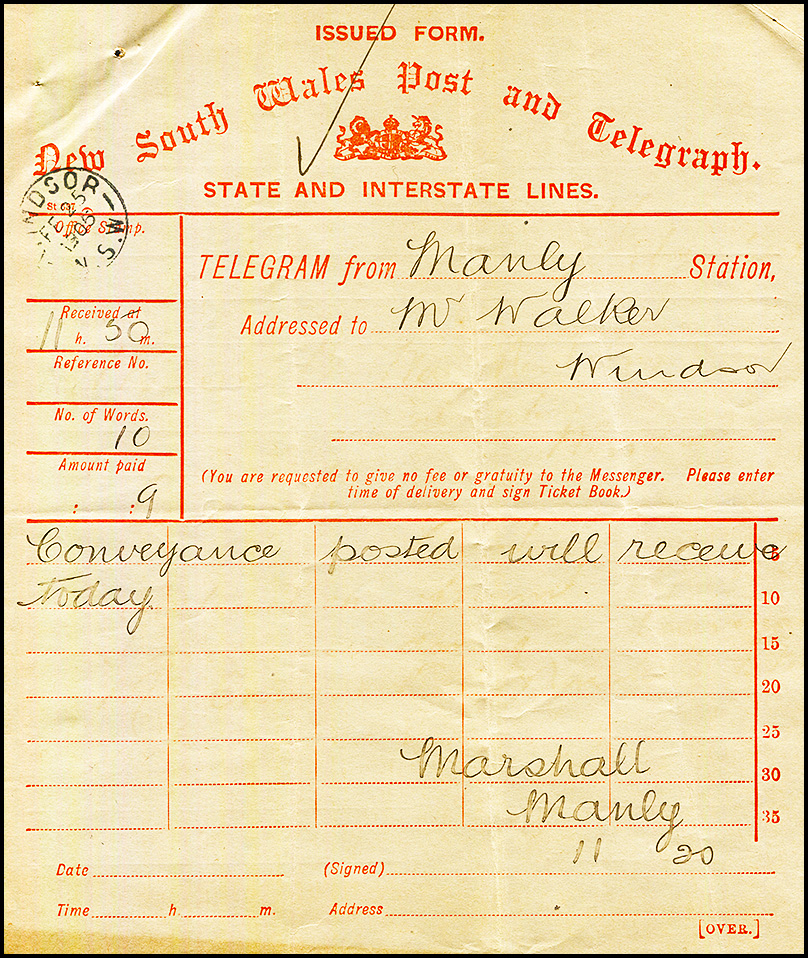 ISSUED FORM.
New South Wales Post and Telegraph.
STATE AND INTERSTATE LINES.
WINDSOR N.S.W
St 637
Office Stamp.
TELEGRAM from Manly Station,
Received at
11 h. 50 m.
Addressed to Mr Walker
Windsor
Reference No.
No. of Words.
10
Amount paid
: : 9
(You are requested to give no fee or gratuity to the Messenger. Please enter
time of delivery and sign Ticket Book.)
Conveyance posted will receive 5
today 10
15
20
25
Marshall 30
Manly 35
11 20
Date (Signed)
Time h. m. Address
[OVER.]